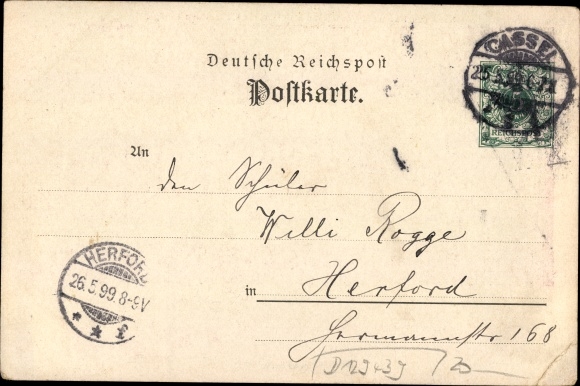 Deutsche Reichspost
Postkarte.
CASSEL
25.5.99.
REICHSPOST
An
den Schüler
Willi Rogge
in Herford
Hermannstr 168
HERFORD
26.5.99.8-9V
* * f